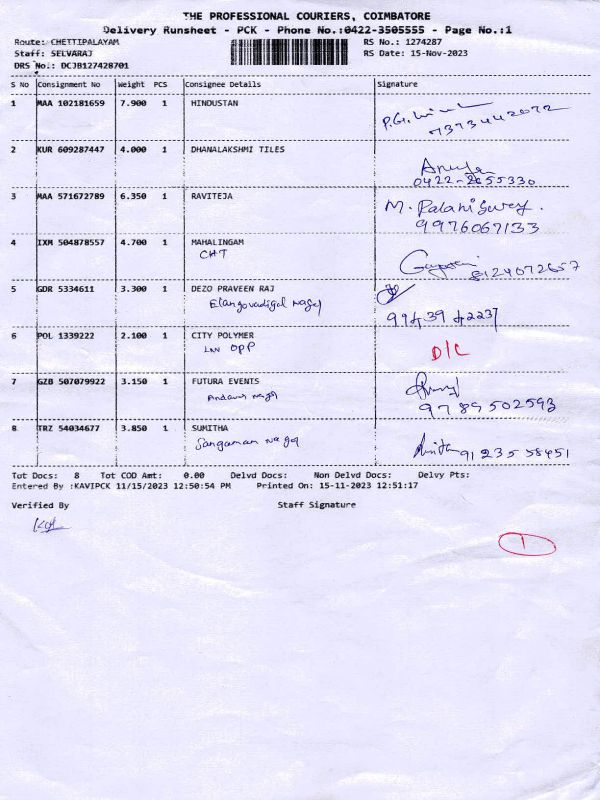 THE PROFESSIONAL COURIERS, COIMBATORE
Delivery Runsheet - PCK - Phone No.:0422-3505555 - Page No.:1
Route: CHETTIPALAYAM RS No.: 1274287
Staff: SELVARAJ RS Date: 15-Nov-2023
DRS No.: DCJB127428701
S No Consignment No Weight PCS Consignee Details Signature
1 MAA 102181659 7.900 1 HINDUSTAN
7373442072
2 KUR 609287447 4.000 1 DHANALAKSHMI TILES
0422-2655330
3 MAA 571672789 6.350 1 RAVITEJA M. Palaniswamy
9976067133
4 IXM 504878557 4.700 1 MAHALINGAM
CHT 8124072657
5 GDR 5334611 3.300 1 DEZO PRAVEEN RAJ
Elangovadigal Nagar
99439 42237
6 POL 1339222 2.100 1 CITY POLYMER
LNV OPP D/C
7 GZB 507079922 3.150 1 FUTURA EVENTS
Andavar Nagar 9789502593
8 TRZ 54034677 3.850 1 SUMITHA
Sangaman Nagar 91235 58451
Tot Docs: 8 Tot COD Amt: 0.00 Delvd Docs: Non Delvd Docs: Delvy Pts:
Entered By :KAVIPCK 11/15/2023 12:50:54 PM Printed On: 15-11-2023 12:51:17
Verified By Staff Signature
1